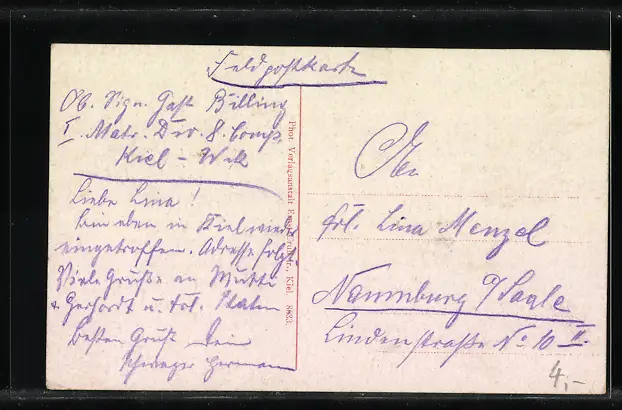 Feldpostkarte
Ob. Sign. Gast Billing
I. Matr. Div. 8. Comp.
Kiel - Wik
Liebe Lina!
bin eben in Kiel wieder
eingetroffen. Adresse folgt.
Viele Grüße an Mutti
Gerhardt u. Frl.
Besten Gruß Dein
Schwager Hermann
Phot. Verlagsanstalt Kiel
An
Frl. Lina Menzel
Naumburg a/Saale
Lindenstraße No 10 II.
4,-